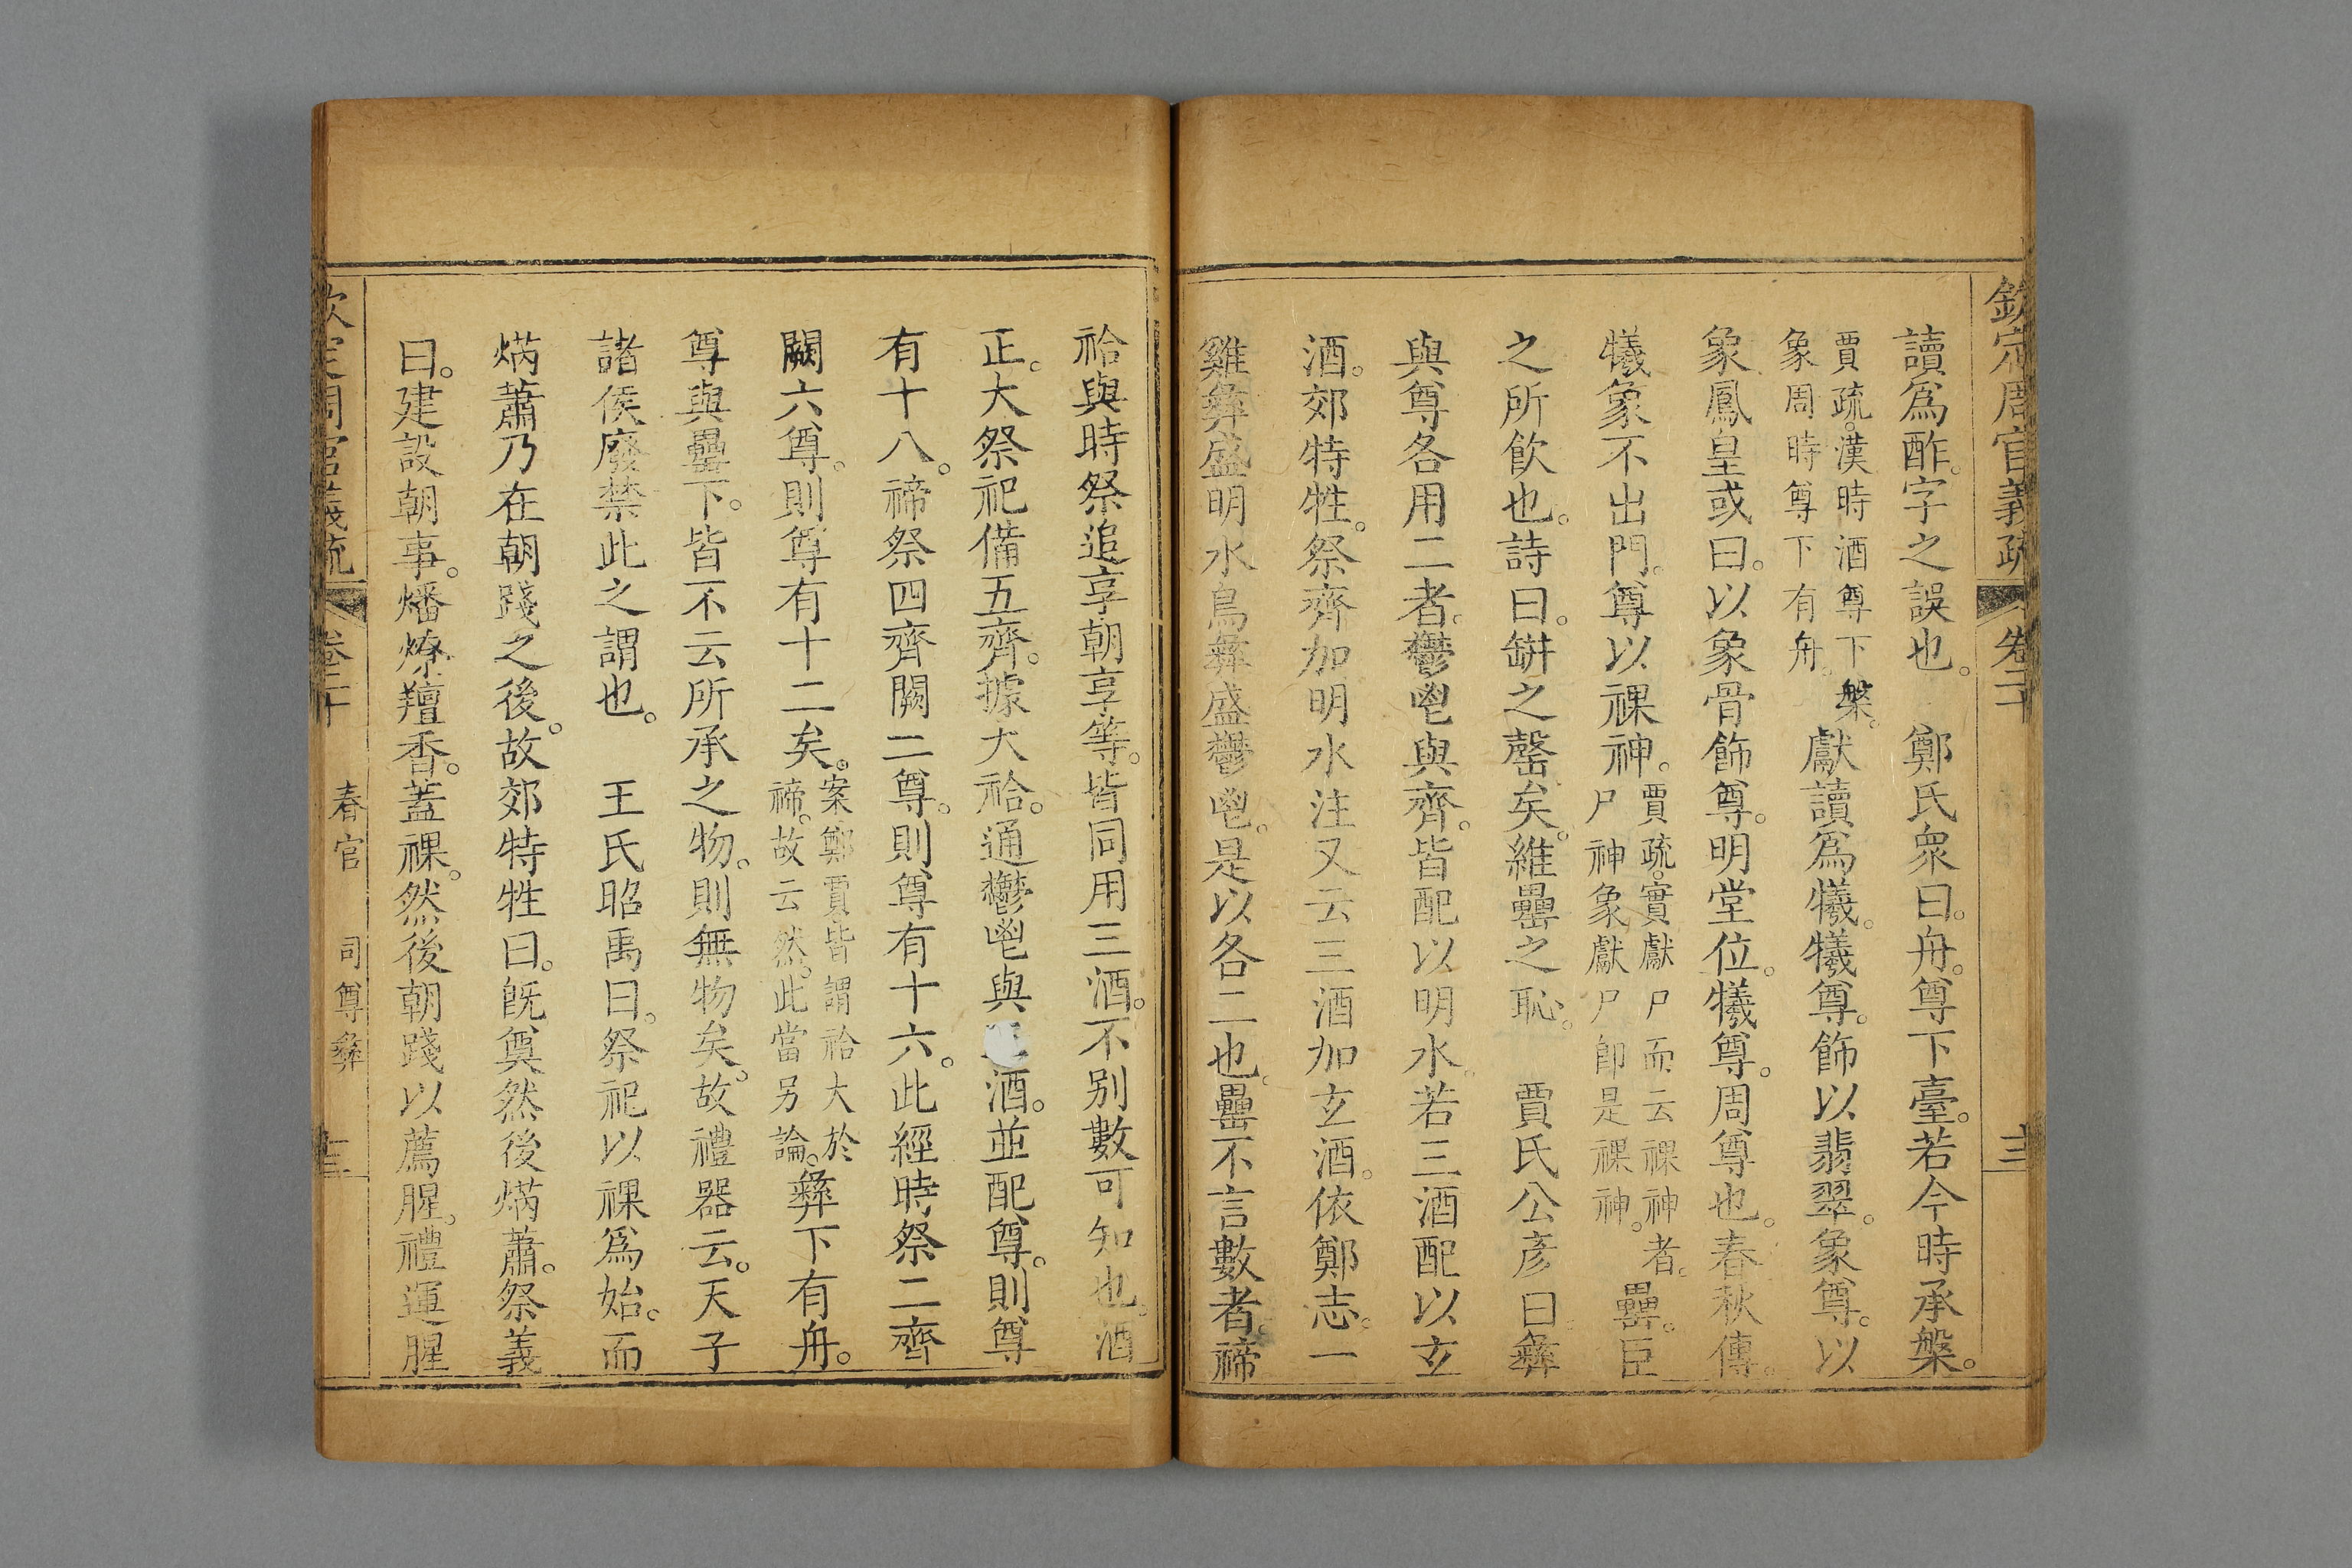 欽定周官義疏 卷二十
讀爲酢。字之誤也。 鄭氏衆曰。舟。尊下臺。若今時承槃。
賈疏。漢時酒尊下槃。
象周時尊下有舟。
獻讀爲犧。犧尊。飾以翡翠。象尊。以
象鳳皇或曰。以象骨飾尊。明堂位。犧尊。周尊也。春秋傳。
犧象不出門。尊以祼神。
賈疏。實獻尸而云祼神者。
尸神象獻尸卽是祼神。
罍。臣
之所飲也。詩曰。缾之罄矣。維罍之恥。 賈氏公彥曰。彝
與尊各用二者。鬱鬯與齊。皆配以明水。若三酒配以玄
酒。郊特牲。祭齊加明水注又云三酒加玄酒。依鄭志。一
雞彝盛明水鳥彝盛鬱鬯。是以各二也。罍不言數者。禘
祫與時祭追享朝享等。皆同用三酒。不別數可知也。酒
正。大祭祀備五齊。據大祫。通鬱鬯與酒。並配尊。則尊
有十八。禘祭四齊闕二尊。則尊有十六。此經時祭二齊
闕六尊。則尊有十二矣。
案鄭賈皆謂祫大於
禘。故云然。此當另論。
彝下有舟。
尊與罍下。皆不云所承之物。則無物矣。故禮器云。天子
諸侯廢禁此之謂也。 王氏昭禹曰。祭祀以祼爲始。而
焫蕭乃在朝踐之後。故郊特牲曰。旣奠然後焫蕭。祭義
曰。建設朝事。燔燎羶香。蓋祼。然後朝踐以薦腥。禮運腥
欽定周官義疏 卷二十 春官 司尊彝